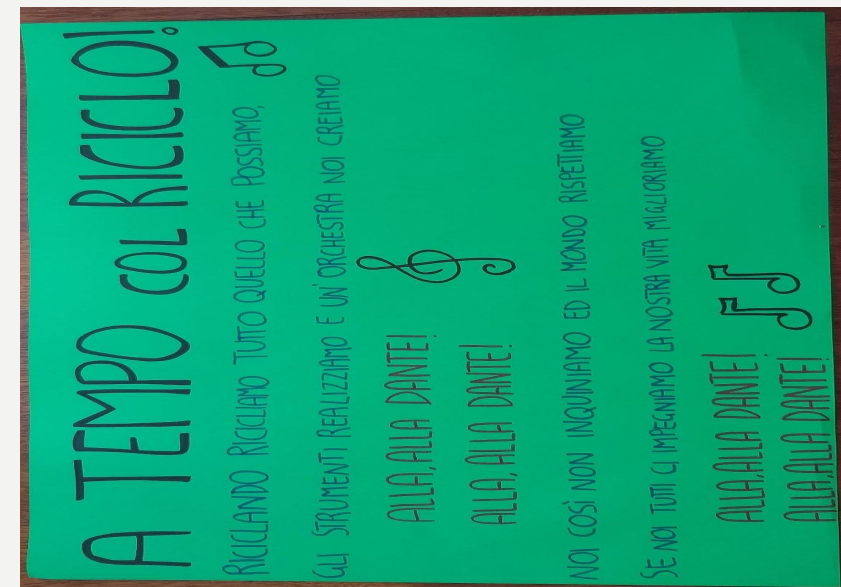 A TEMPO COL RICICLO!
RICICLANDO RICICLIAMO TUTTO QUELLO CHE POSSIAMO,
GLI STRUMENTI REALIZZIAMO E UN'ORCHESTRA NOI CREIAMO
ALLA, ALLA DANTE!
ALLA, ALLA DANTE!
NOI COSÌ NON INQUINIAMO ED IL MONDO RISPETTIAMO
SE NOI TUTTI CI IMPEGNIAMO LA NOSTRA VITA MIGLIORIAMO
ALLA, ALLA DANTE!
ALLA, ALLA DANTE!